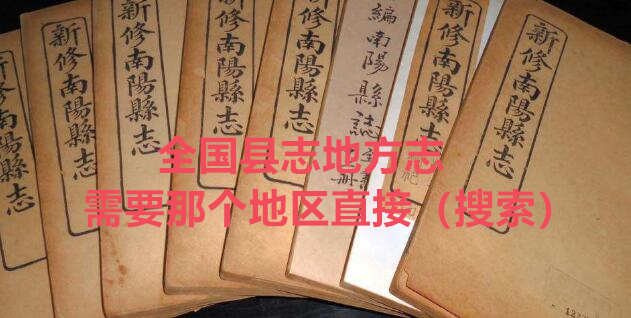 新修南陽縣志
新修南陽縣志
新修南陽縣志
新修南陽縣志
編南陽縣誌全
冊
新修南陽縣志
新修南陽縣志
全国县志地方志
需要那个地区直接（搜索）